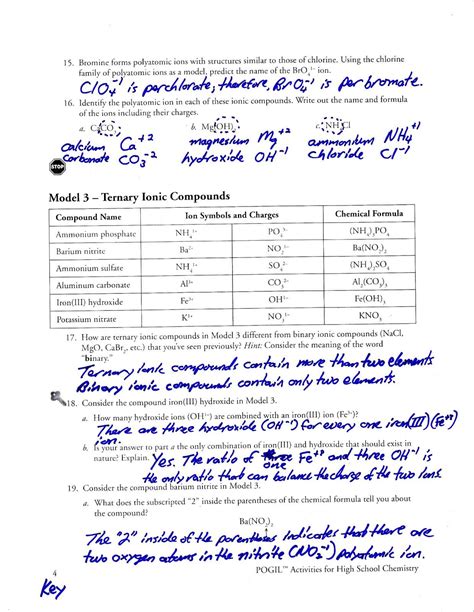 15. Bromine forms polyatomic ions with structures similar to those of chlorine. Using the chlorine
family of polyatomic ions as a model, predict the name of the BrO₄¹⁻ ion.
ClO₄⁻¹ is perchlorate; therefore, BrO₄⁻¹ is perbromate.
16. Identify the polyatomic ion in each of these ionic compounds. Write out the name and formula
of the ions including their charges.
a. CaCO₃ b. Mg(OH)₂ c. NH₄Cl
calcium Ca⁺² magnesium Mg⁺² ammonium NH₄⁺¹
carbonate CO₃⁻² hydroxide OH⁻¹ chloride Cl⁻¹
STOP
Model 3 – Ternary Ionic Compounds
Compound Name Ion Symbols and Charges Chemical Formula
Ammonium phosphate NH₄¹⁺ PO₄³⁻ (NH₄)₃PO₄
Barium nitrite Ba²⁺ NO₂¹⁻ Ba(NO₂)₂
Ammonium sulfate NH₄¹⁺ SO₄²⁻ (NH₄)₂SO₄
Aluminum carbonate Al³⁺ CO₃²⁻ Al₂(CO₃)₃
Iron(III) hydroxide Fe³⁺ OH¹⁻ Fe(OH)₃
Potassium nitrate K¹⁺ NO₃¹⁻ KNO₃
17. How are ternary ionic compounds in Model 3 different from binary ionic compounds (NaCl,
MgO, CaBr₂, etc.) that you've seen previously? Hint: Consider the meaning of the word
"binary."
Ternary ionic compounds contain more than two elements.
Binary ionic compounds contain only two elements.
18. Consider the compound iron(III) hydroxide in Model 3.
a. How many hydroxide ions (OH¹⁻) are combined with an iron(III) ion (Fe³⁺)?
There are three hydroxide (OH⁻¹) for every one iron(III) (Fe⁺³)
ion.
b. Is your answer to part a the only combination of iron(III) and hydroxide that should exist in
nature? Explain. Yes. The ratio of three Fe⁺³ and three OH⁻¹ is
one
the only ratio that can balance the charge of the two ions.
19. Consider the compound barium nitrite in Model 3.
a. What does the subscripted "2" inside the parentheses of the chemical formula tell you about
the compound?
Ba(NO₂)₂
The "2" inside of the parentheses indicates that there are
two oxygen atoms in the nitrite (NO₂⁻¹) polyatomic ion.
4 POGIL™ Activities for High School Chemistry
Key